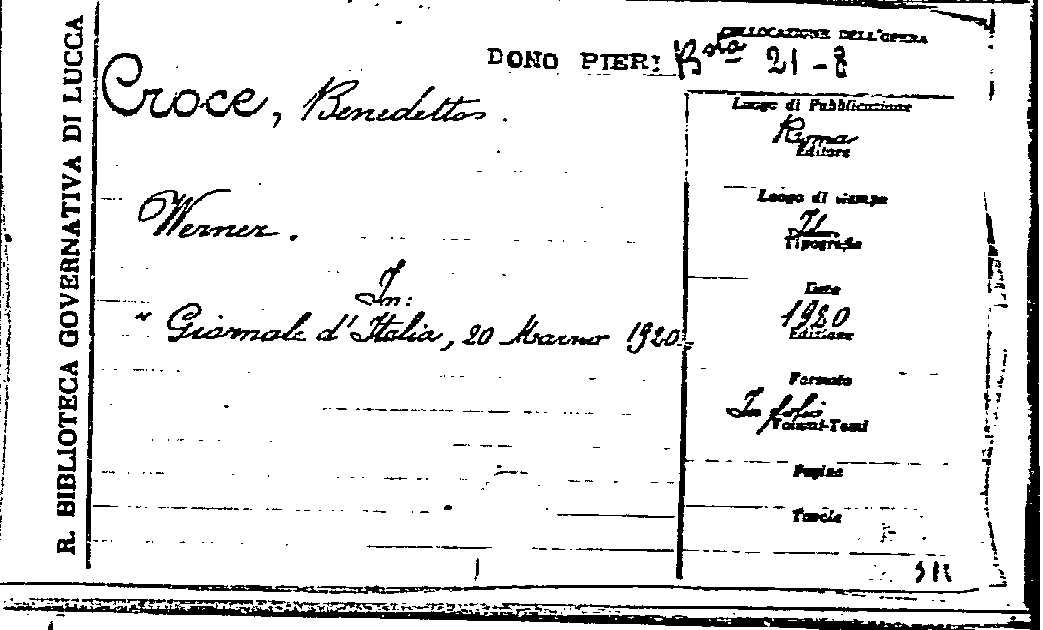 R. BIBLIOTECA GOVERNATIVA DI LUCCA
COLLOCAZIONE DELL'OPERA
DONO PIERI Bsta 21-8
Croce, Benedetto.
Werner.
In:
" Giornale d'Italia, 20 Marzo 1920.
Luogo di Pubblicazione
Roma
Editore
Luogo di stampa
Id.
Tipografia
Data
1920
Edizione
Formato
In folio
Volumi-Tomi
Pagine
Tavole